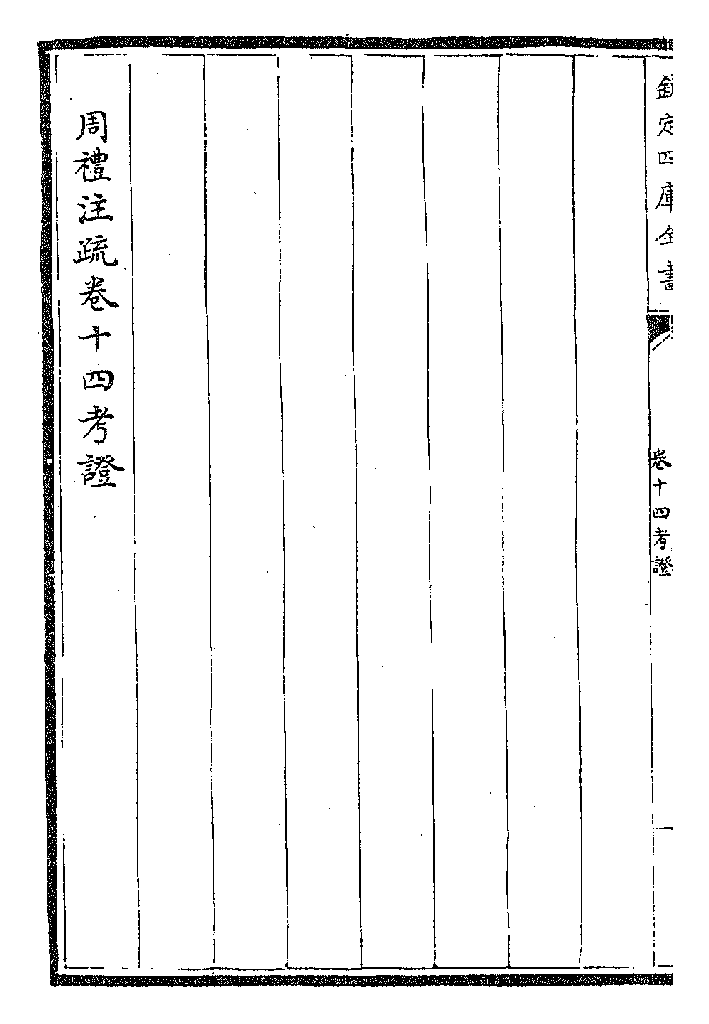 欽定四庫全書
卷十四考證
周禮注疏卷十四考證